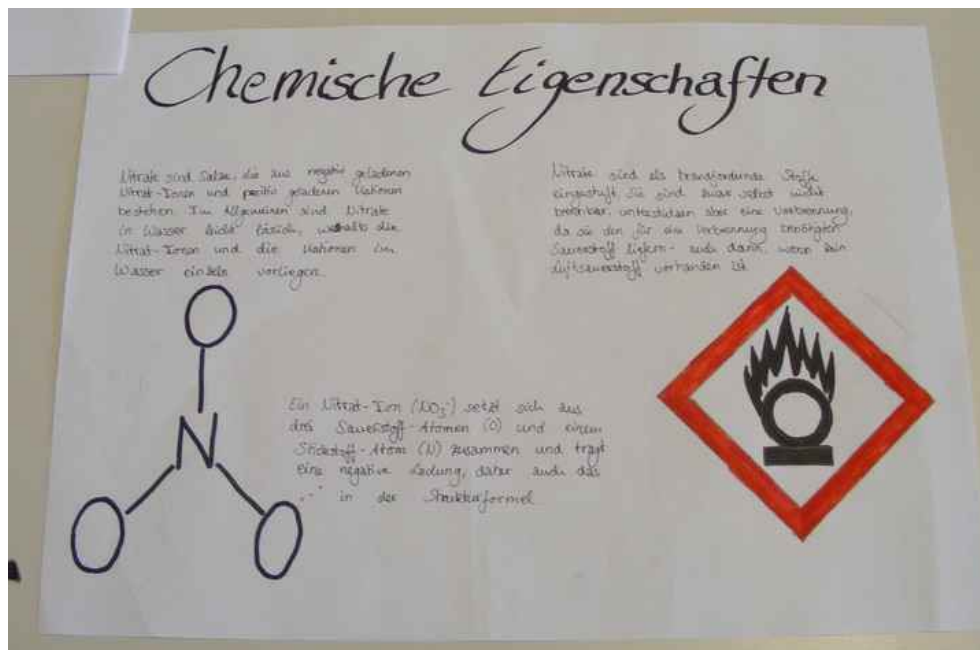 Chemische Eigenschaften
Nitrate sind Salze, die aus negativ geladenen
Nitrat-Ionen und positiv geladenen Kationen
bestehen. Im Allgemeinen sind Nitrate
in Wasser leicht löslich, weshalb die
Nitrat-Ionen und die Kationen im
Wasser einzeln vorliegen.
Nitrate sind als brandfördernde Stoffe
eingestuft. Sie sind zwar selbst nicht
brennbar, unterstützen aber eine Verbrennung,
da sie den für eine Verbrennung benötigten
Sauerstoff liefern - auch dann, wenn kein
Luftsauerstoff vorhanden ist
O
N
O
O
Ein Nitrat-Ion (NO₃⁻) setzt sich aus
drei Sauerstoff-Atomen (O) und einem
Stickstoff-Atom (N) zusammen und trägt
eine negative Ladung, daher auch das
„-" in der Strukturformel